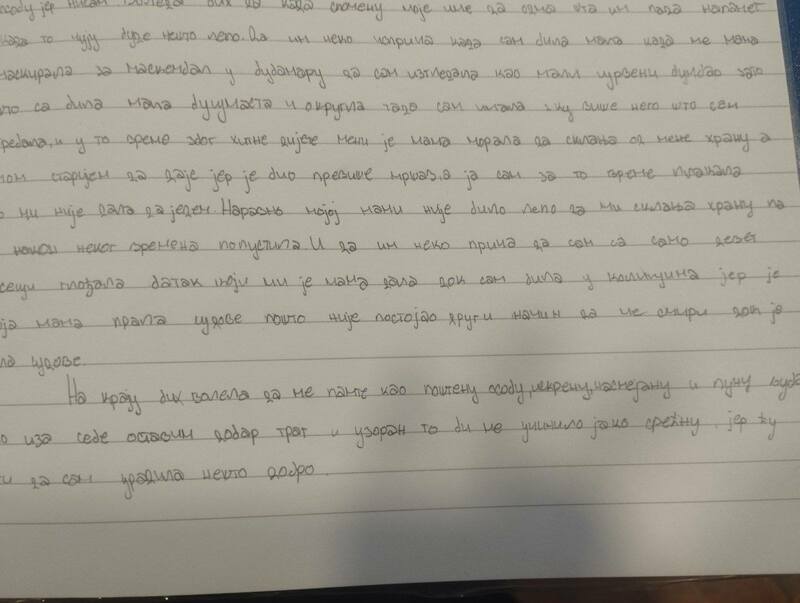 особу јер нисам волела бих да када спомену моје име да одма шта им пада напамет
када то чују буде нешто лепо. Да им неко исприча када сам била мала када ме мама
маскирала за маскенбал у будамару да сам изгледала као мали црвени бумбар зато
што са била мала буцмаста и округла тада сам имала кг више него што сем
и у то време због хипне дијете мени је мама морала да склања од мене храну а
старијем да даје јер је био превише мршав, а ја сам за то време плакала
ми није дала да једем. Наравно мојој мами није било лепо да ми склања храну па
је након неког времена попустила. И да им неко прича да сам са само девет
месеци глођала батак који ми је мама дала док сам била у колицима јер је
моја мама прала судове пошто није постојао други начин да ме смири док је
прала судове.
На крају бих волела да ме памте као поштену особу, искрену, насмејану и пуну
иза себе оставим добар траг и узоран то би ме учинило јако срећну, јер ћу
да сам урадила нешто добро.